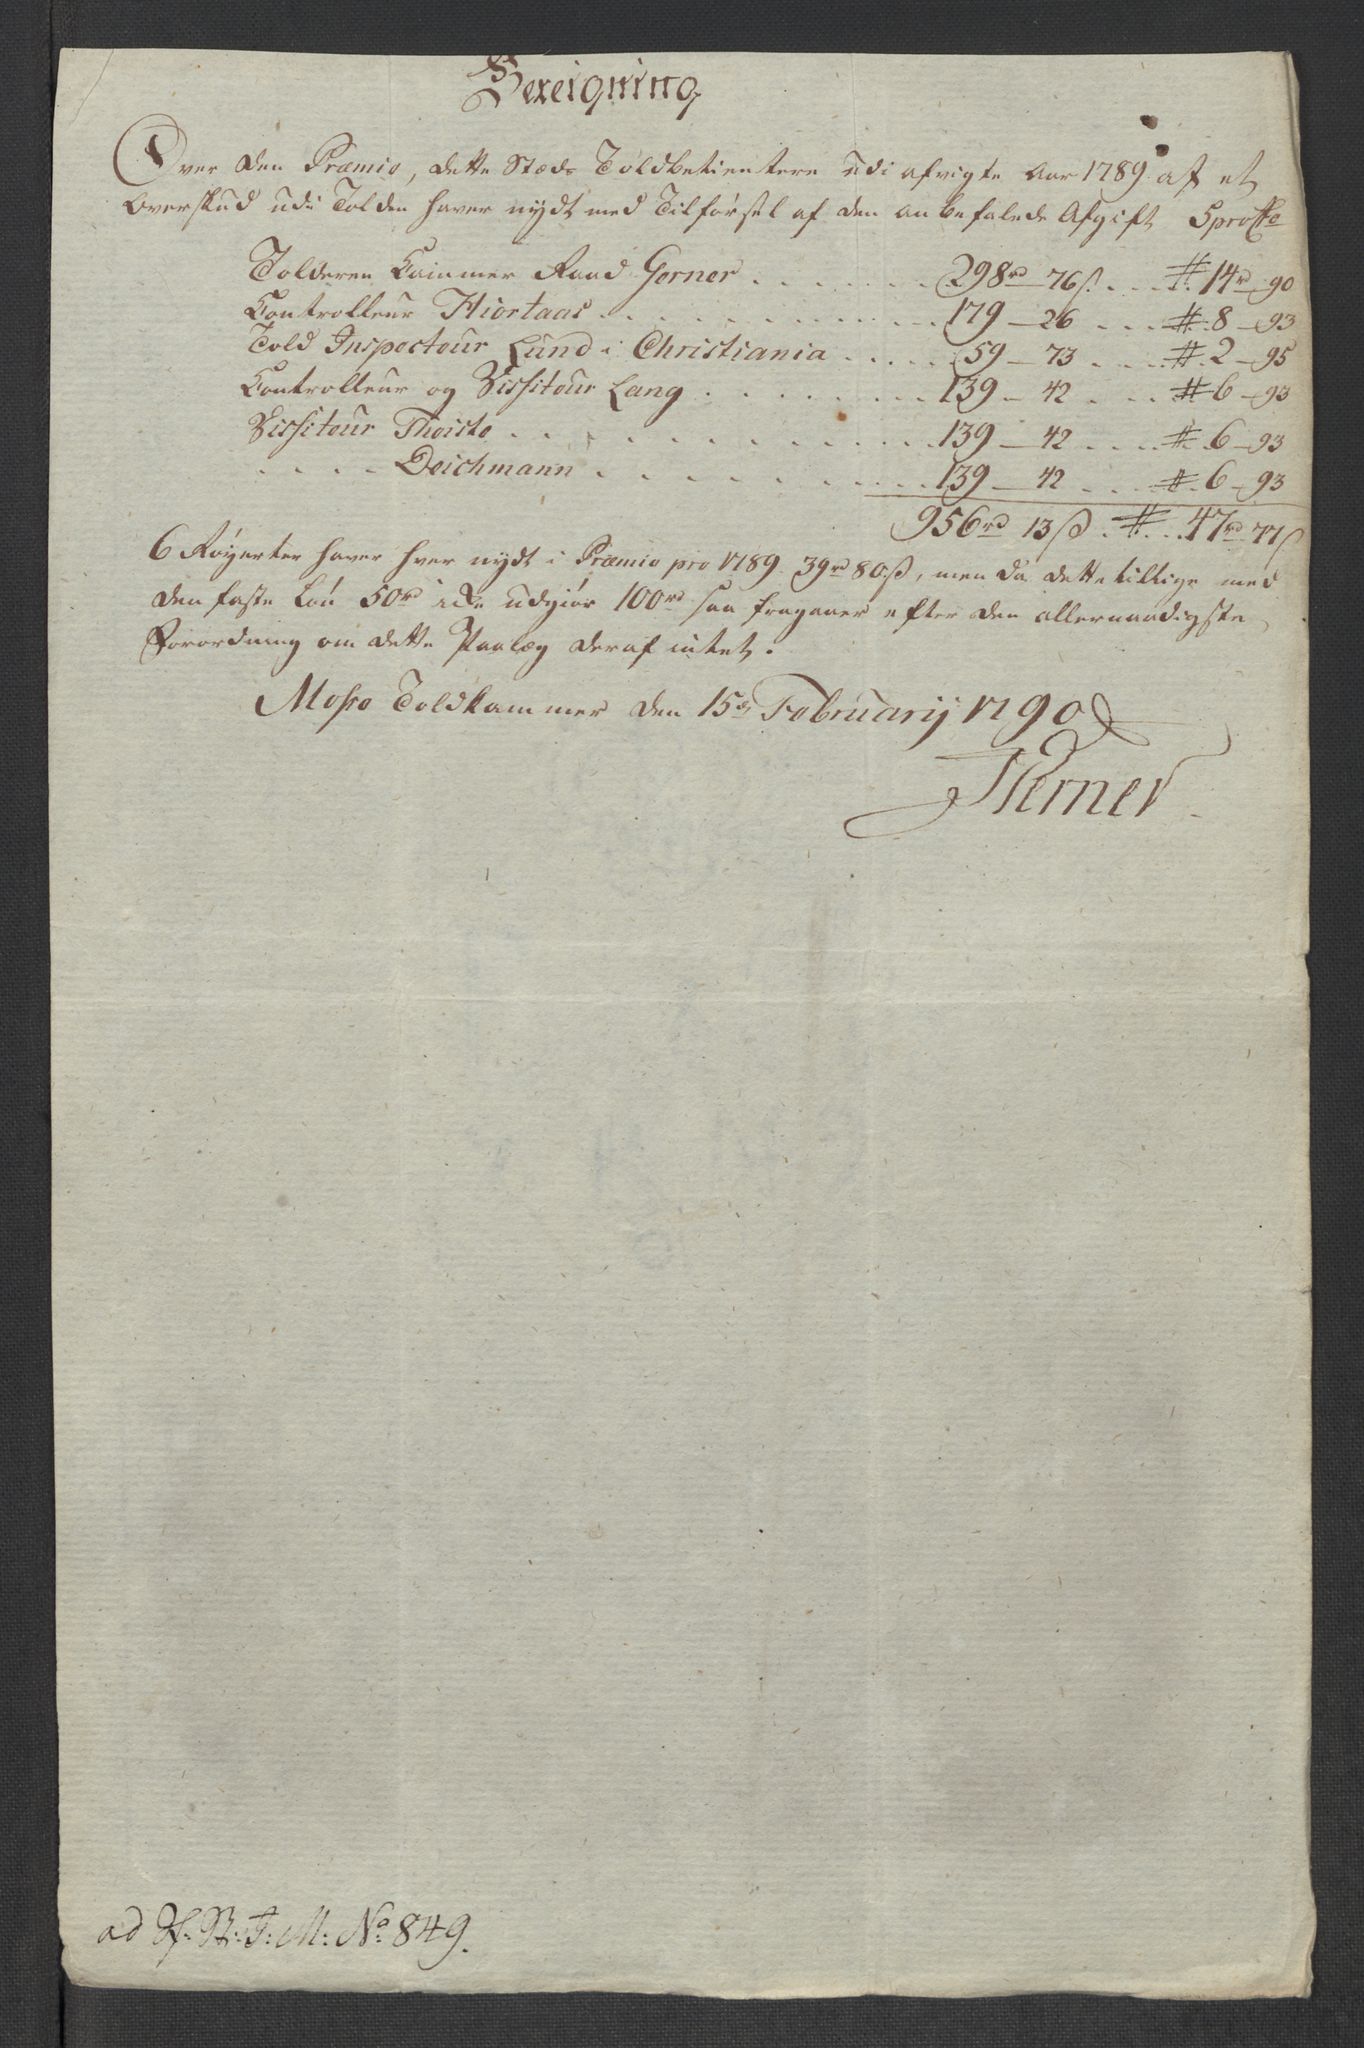 Bereigning
Over den Præmie, dette Stæds Toldbetientere udi afvigte Aar 1789 af et
Overskud udi Tolden haver nydt med Tilførsel af den anbefalede Afgift 5 proCto
Tolderen Cammer Raad Gerner . . . . . . . 298rd 76ß . . . # 14rd 90
Controlleur Hiortaas . . . . . . . . . . . . 179 — 26 . . . # 8 — 93
Told Inspecteur Lund i Christiania . . . . . 59 — 73 . . . # 2 — 95
Controlleur og Vissiteur Lang . . . . . . . . 139 — 42 . . . # 6 — 93
Vissiteur Theiste . . . . . . . . . . . . . 139 — 42 . . . # 6 — 93
. . . . Deichmann . . . . . . . . . . . 139 — 42 . . . # 6 — 93
956rd 13ß . # . . 47rd 77ß
6 Røyerter haver hver nydt i Præmie pro 1789 39rd 80ß, men da dette tillige med
den faste Løn 50rd icke udgiør 100rd saa fragaaer efter den allernaadigste
Forordning om dette Paalæg deraf intet.
Mosse Toldkammer den 15de Februarij 1790
Gerner
ad No 849.